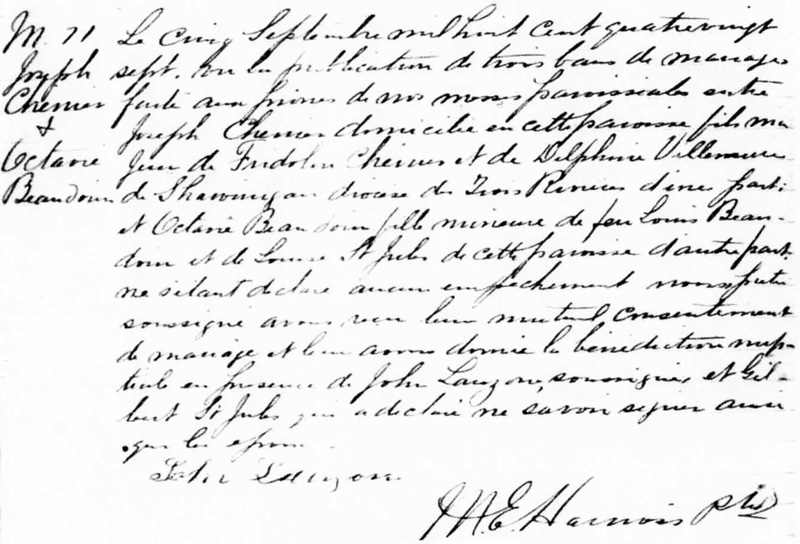 M. 71
Joseph
Chenier
&
Octavie
Beaudoin
Le cinq Septembre mil huit cent quatre vingt
sept, vu la publication de trois bans de mariage
faite aux prônes de nos messes paroissiales entre
Joseph Chenier domicilié en cette paroisse fils ma
jeur de Fridolin Chenier et de Delphine Villeneuve
de Shawinigan diocèse des Trois Rivières d'une part;
et Octavie Beaudoin fille mineure de feu Louis Beau-
doin et de Louise St Jules de cette paroisse d'autre part.
ne s'étant déclaré aucun empêchement nous prêtre
soussigné avons reçu leur mutuel consentement
de mariage et leur avons donné la bénédiction nup-
tiale en présence de John Lauzon, soussigné, et Gil-
bert St Jules qui a déclaré ne savoir signer ainsi
que les époux.
John Lauzon
M. E. Harnois Ptre